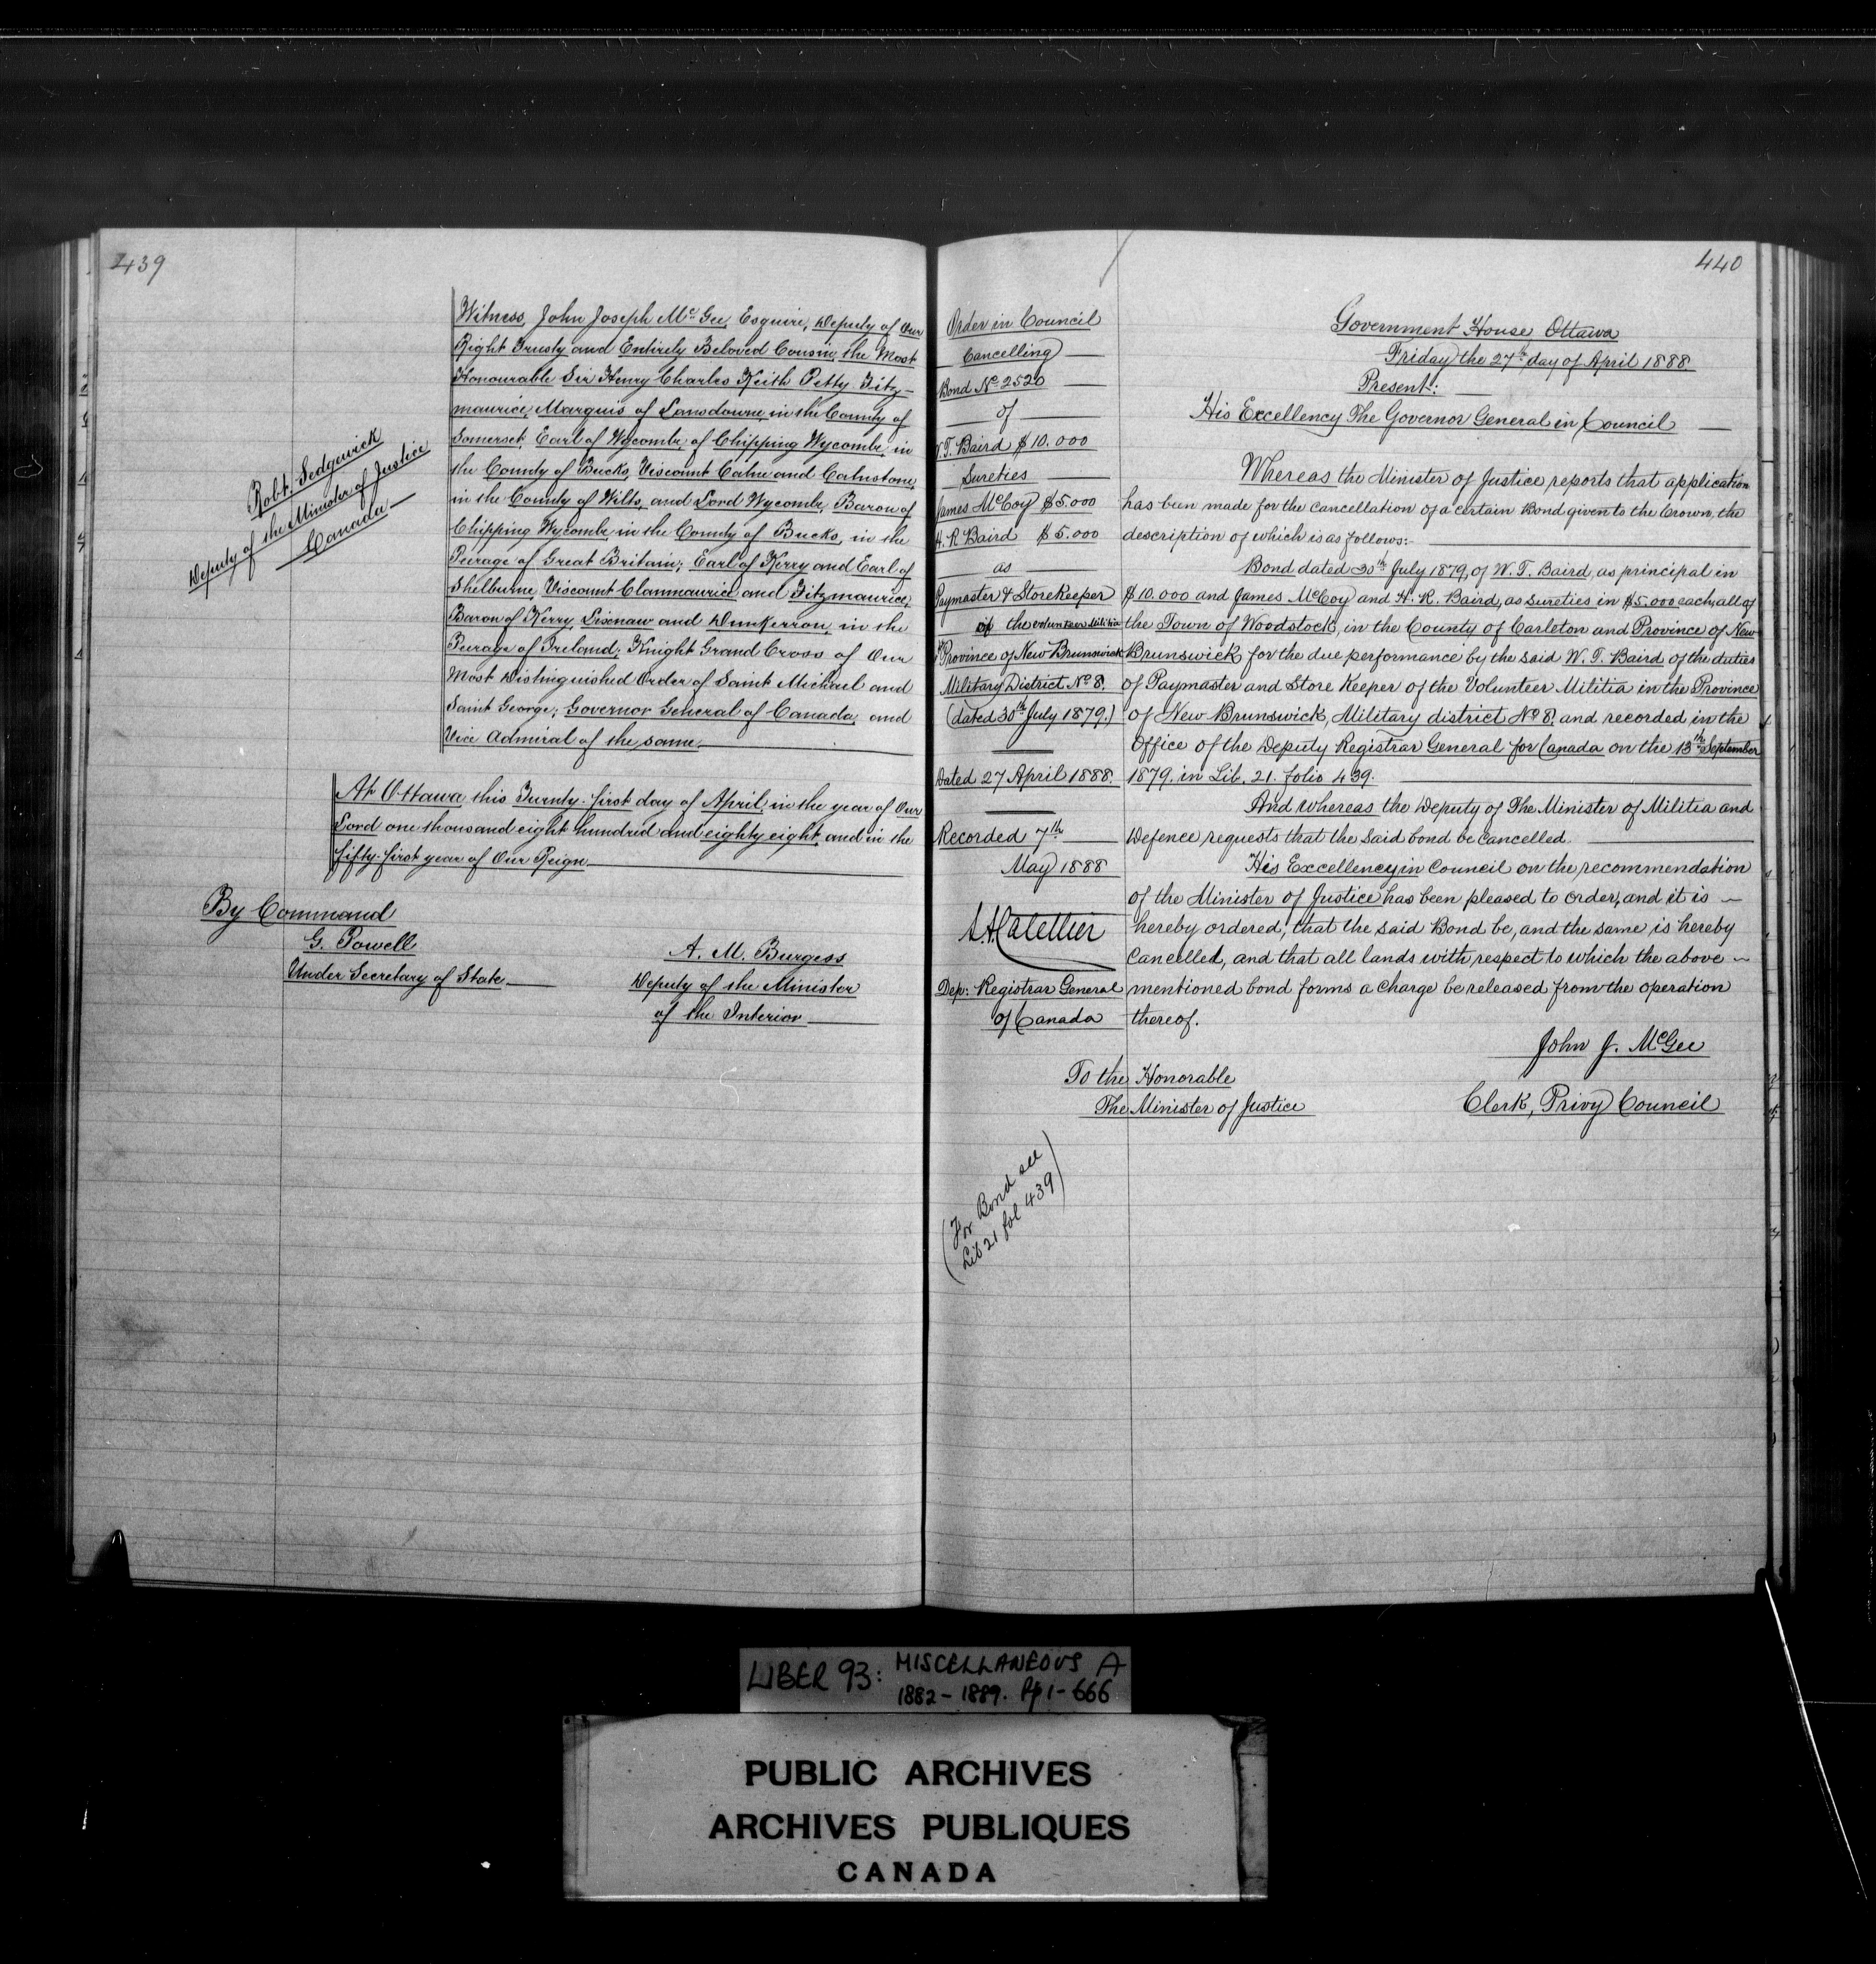 439
Robt. Sedgewick
Deputy of the Minister of Justice
Canada
Witness, John Joseph McGee, Esquire, Deputy of Our
Right Trusty and Entirely Beloved Cousin, the Most
Honourable Sir Henry Charles Keith Petty Fitz-
maurice, Marquis of Lansdowne, in the County of
Somerset, Earl of Wycombe, of Chipping Wycombe, in
the County of Bucks, Viscount Calne and Calnstone,
in the County of Wilts, and Lord Wycombe, Baron of
Chipping Wycombe in the County of Bucks, in the
Peerage of Great Britain; Earl of Kerry and Earl of
Shelburne, Viscount Clanmaurice and Fitzmaurice,
Baron of Kerry, Lixnaw and Dunkerron, in the
Peerage of Ireland; Knight Grand Cross of Our
Most Distinguished Order of Saint Michael and
Saint George; Governor General of Canada, and
Vice Admiral of the same.
At Ottawa, this Twenty-first day of April, in the year of Our
Lord one thousand eight hundred and eighty eight, and in the
fifty-first year of Our Reign
By Command
G. Powell
Under Secretary of State
A. M. Burgess
Deputy of the Minister
of the Interior
440
Order in Council
Cancelling
Bond No 2520
of
W.T. Baird $10.000
Sureties
James McCoy $5.000
H. R Baird $5.000
as
Paymaster & Storekeeper
of the Volunteer Militia
Province of New Brunswick
Military District No 8.
(dated 30th July 1879.)
Dated 27 April 1888.
Recorded 7th
May 1888
Dep: Registrar General
of Canada
Government House Ottawa
Friday the 27th day of April 1888.
Present:
His Excellency The Governor General in Council
Whereas the Minister of Justice reports that application
has been made for the cancellation of a certain Bond given to the Crown, the
description of which is as follows:-
Bond dated 30th July 1879, of W. T. Baird, as principal in
$10.000 and James McCoy and H. R. Baird, as sureties in $5.000 each, all of
the Town of Woodstock, in the County of Carleton and Province of New
Brunswick for the due performance by the said W. T. Baird of the duties
of Paymaster and Store Keeper of the Volunteer Militia in the Province
of New Brunswick, Military district No 8, and recorded in the
Office of the Deputy Registrar General for Canada on the 13th September
1879, in Lib. 21. folio 439.
And whereas the Deputy of The Minister of Militia and
Defence requests that the said bond be cancelled.
His Excellency in Council on the recommendation
of the Minister of Justice has been pleased to order, and it is
hereby ordered, that the said Bond be, and the same is hereby
Cancelled, and that all lands with respect to which the above
mentioned bond forms a charge be released from the operation
thereof.
John J. McGee
Clerk, Privy Council
To the Honorable
The Minister of Justice
(For Bond see
Lib 21 fol 439)
LIBER 93: MISCELLANEOUS A
1882-1889. Pp 1-666
PUBLIC ARCHIVES
ARCHIVES PUBLIQUES
CANADA